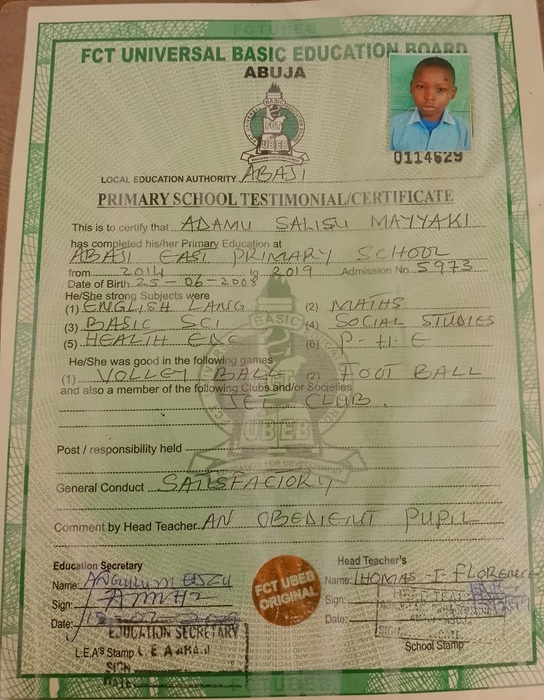 FCT UNIVERSAL BASIC EDUCATION BOARD
ABUJA
FCT
UBEB
0114629
LOCAL EDUCATION AUTHORITY ABAJI
PRIMARY SCHOOL TESTIMONIAL/CERTIFICATE
This is to certify that ADAMU SALISU MAYYAKI
has completed his/her Primary Education at
ABAJI EAST PRIMARY SCHOOL
from 2014 to 2019 Admission No 5973
Date of Birth 25-06-2008
He/She strong Subjects were
(1) ENGLISH LANG (2) MATHS
(3) BASIC SCI (4) SOCIAL STUDIES
(5) HEALTH EDC (6) P-H-E
He/She was good in the following games
(1) VOLLEY BALL (2) FOOT BALL
and also a member of the following Clubs and/or Societies
JET CLUB
UBEB
Post / responsibility held
General Conduct SATISFACTORY
Comment by Head Teacher AN OBEDIENT PUPIL
Education Secretary Head Teacher's
Name: Name: THOMAS -J- FLORENCE
FCT UBEB
ORIGINAL
Sign: Sign:
Date: Date:
EDUCATION SECRETARY
L.E.A's Stamp L E A ABAJI School Stamp
SIGN
DATE